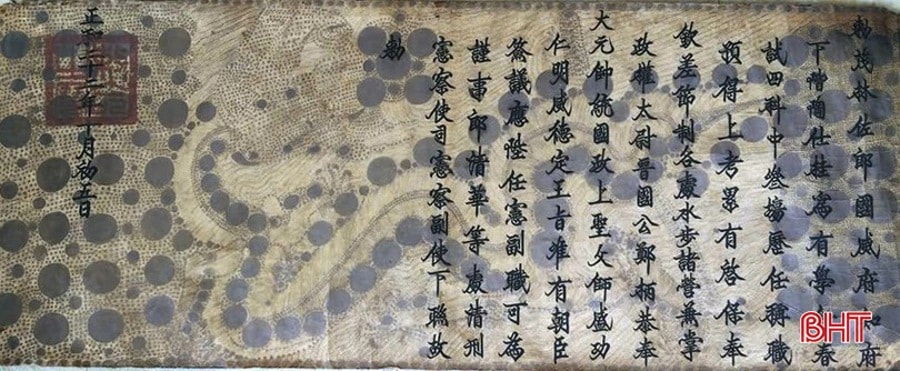 勅茂林佐郎國威府知府
下階仕桂寫有學春
試四科中叄塲歷任稱職
預得上考累有啓保奉
欽差節制各處水步諸營兼掌
政權太尉晋國公鄭柄恭奉
大元帥統國政上聖父師盛功
仁明威德定王旨准有朝臣
簽議應陞任憲副職可為
謹事郎清華等處清刑
憲察使司憲察副使下聯故
勅
正和二十二年十月初五日
BHT